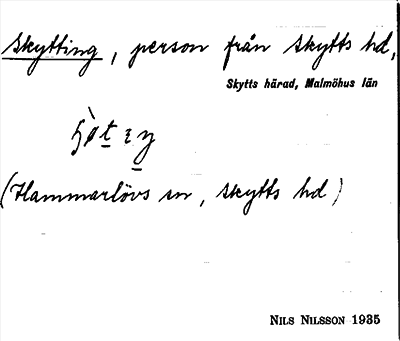 Skytting, person från Skytts hd,
Skytts härad, Malmöhus län
(Hammarlövs sn, Skytts hd)
NILS NILSSON 1935